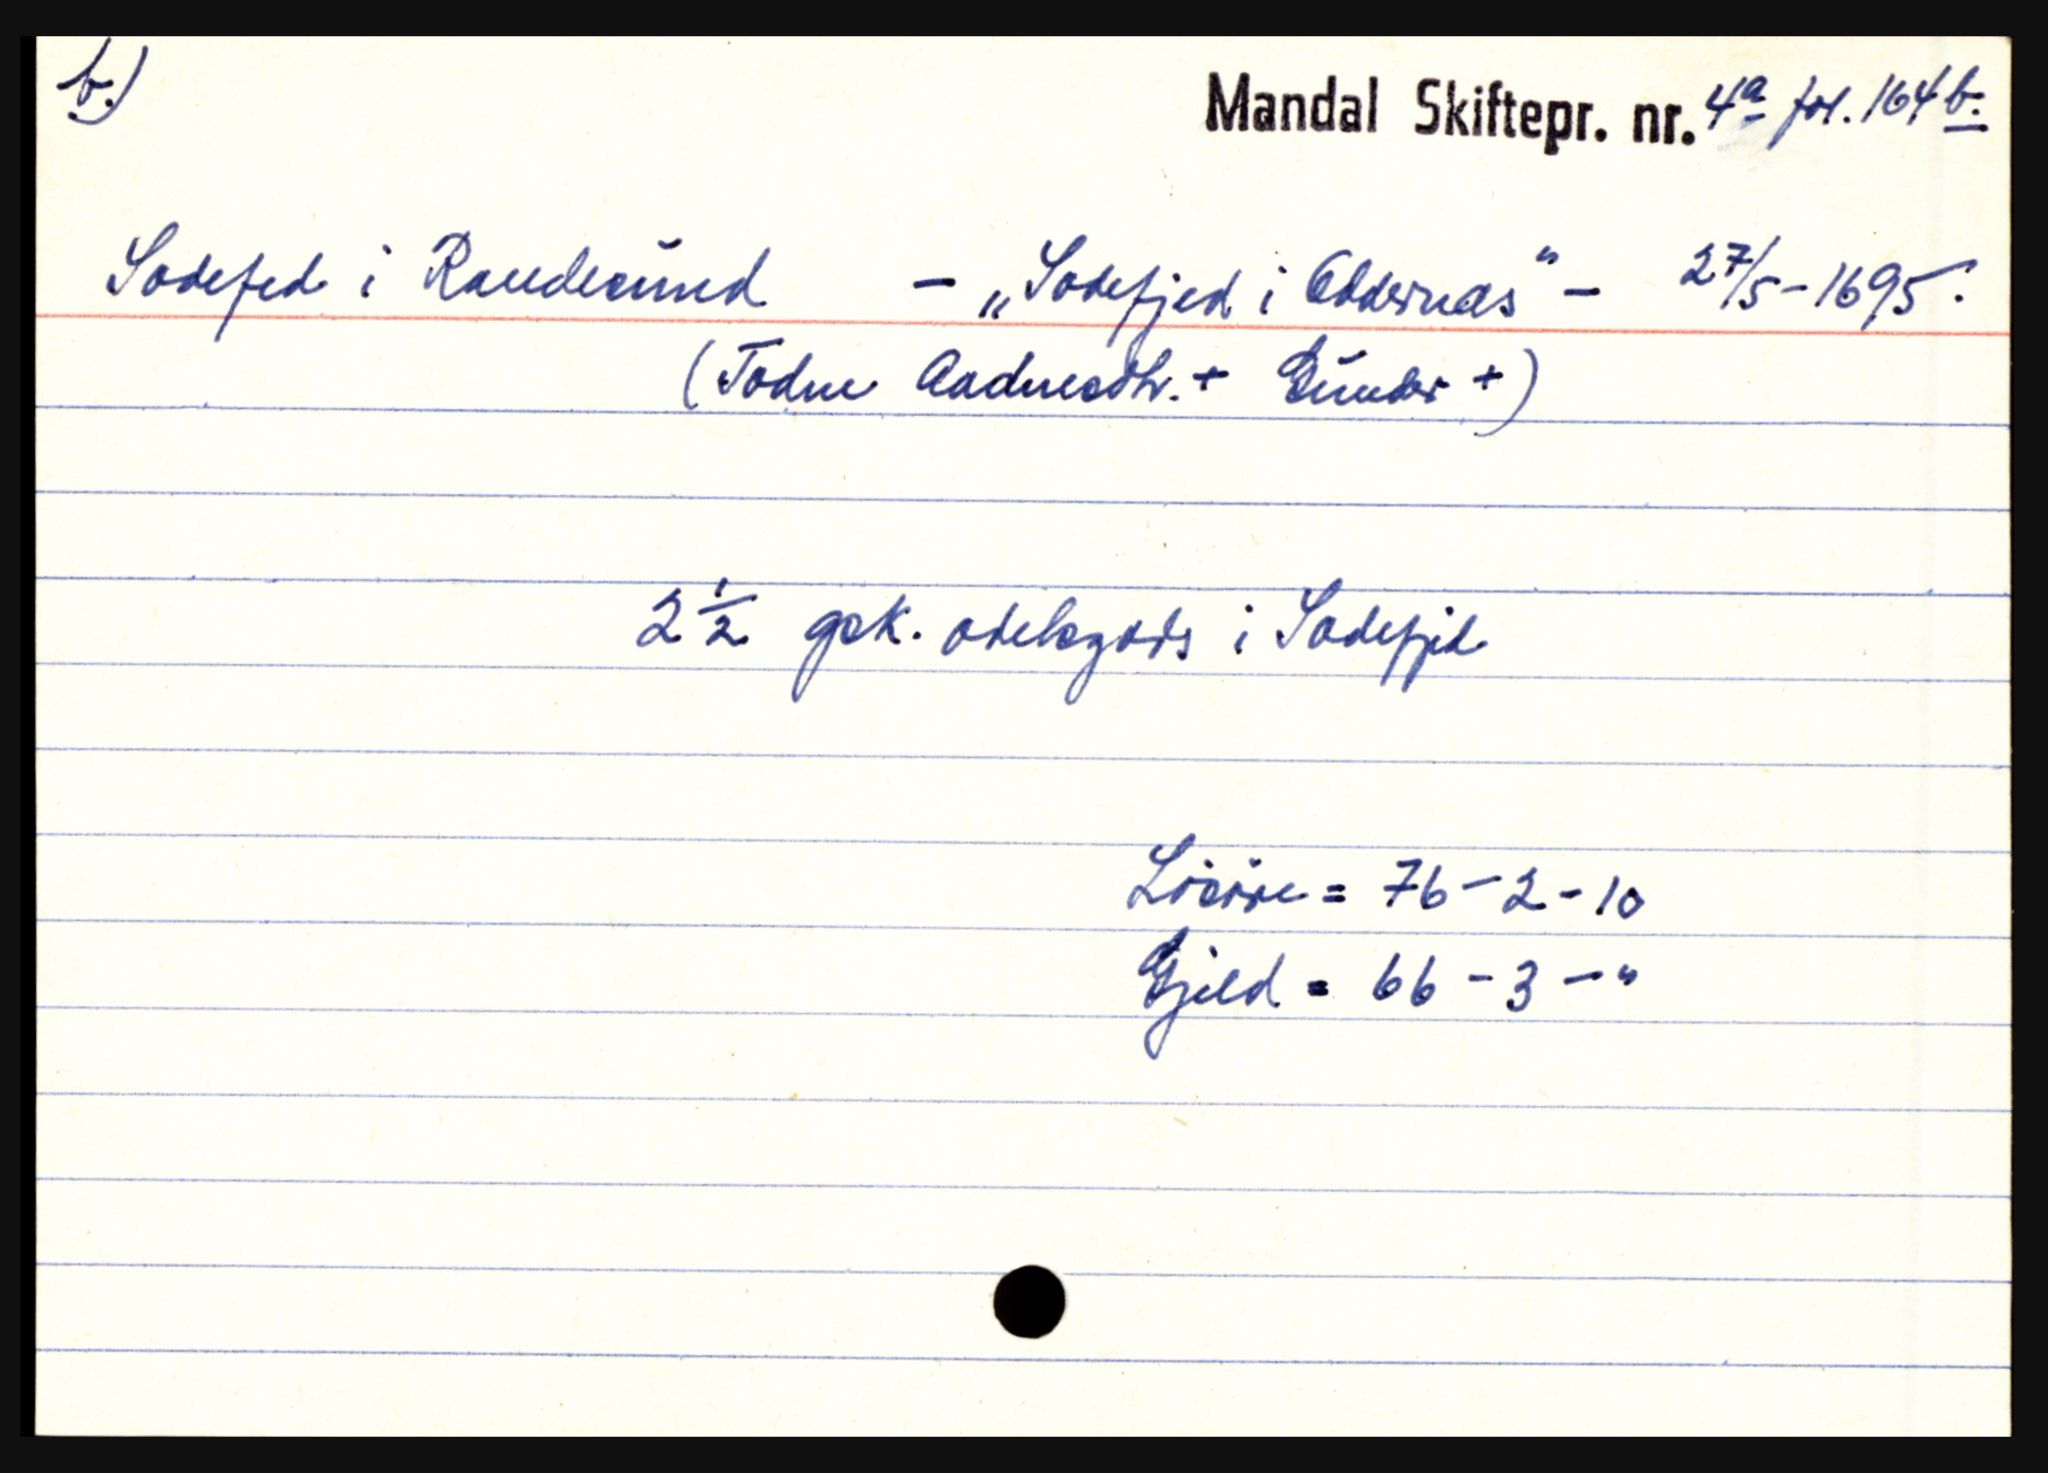 b.)
Mandal Skiftepr. nr. 4a fol. 164 b.
Sodefed i Randesund — „Sodefjed i Oddernæs“ — 27/5-1695.
(Todne Aadnesdtr. + Gunder +)
2 1/2 gsk. odelsgods i Sodefjed
Lösöre = 76 - 2 - 10
Gjeld = 66 - 3 - "